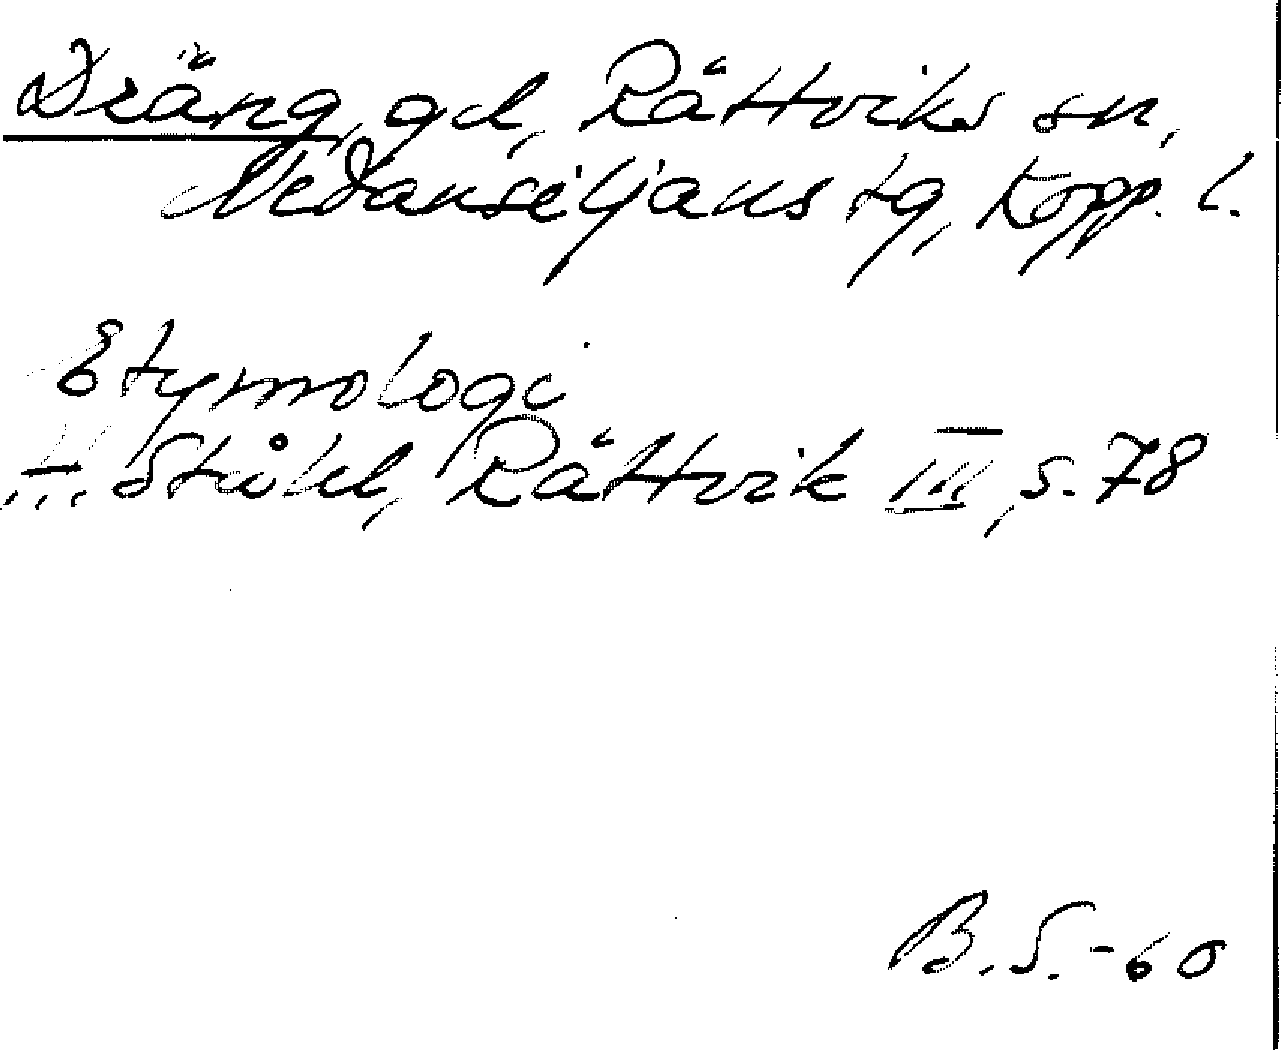 Dräng, gd, Rättviks sn,
Nedansiljans tg, Kopp. l.
Etymologi
H. Ståhl, Rättvik III, s. 78
B. S. -60